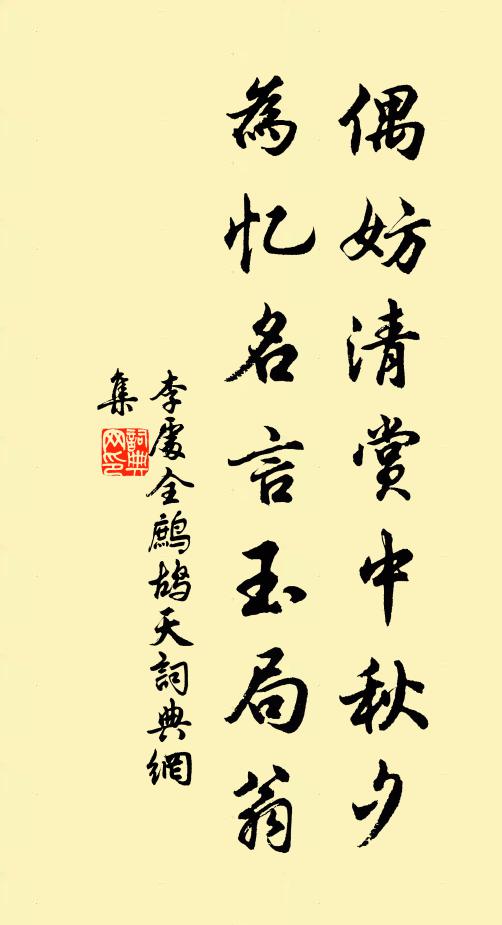 偶妨清赏中秋夕
為忆名言玉局翁
李處全鷓鴣天詞典網
集
詞典网印